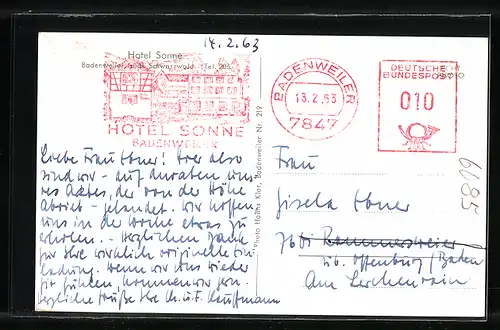 14.2.63
Hotel Sonne
Badenweiler, südl. Schwarzwald · Tel. 203
HOTEL SONNE
BADENWEILER
BADENWEILER
13.2.63
7847
DEUTSCHE
BUNDESPOST
010
Liebe Frau Ebner! Hier also
sind wir - auf Anraten uns-
res Arztes, der von der Höhe
abriet - gelandet. Wir hoffen
uns in der Woche etwas zu
erholen. - Herzlichen Dank
für Ihre wirklich originelle Ein-
ladung. Wenn wir uns wieder
fit fühlen, kommen wir gern.
Herzliche Grüße Ihre Ch. u. F. Kauffmann
Photo Karl, Badenweiler Nr. 219
Frau
Gisela Ebner
7601 Rammersweier
üb. Offenburg/Baden
Am Lerchenrain
6085